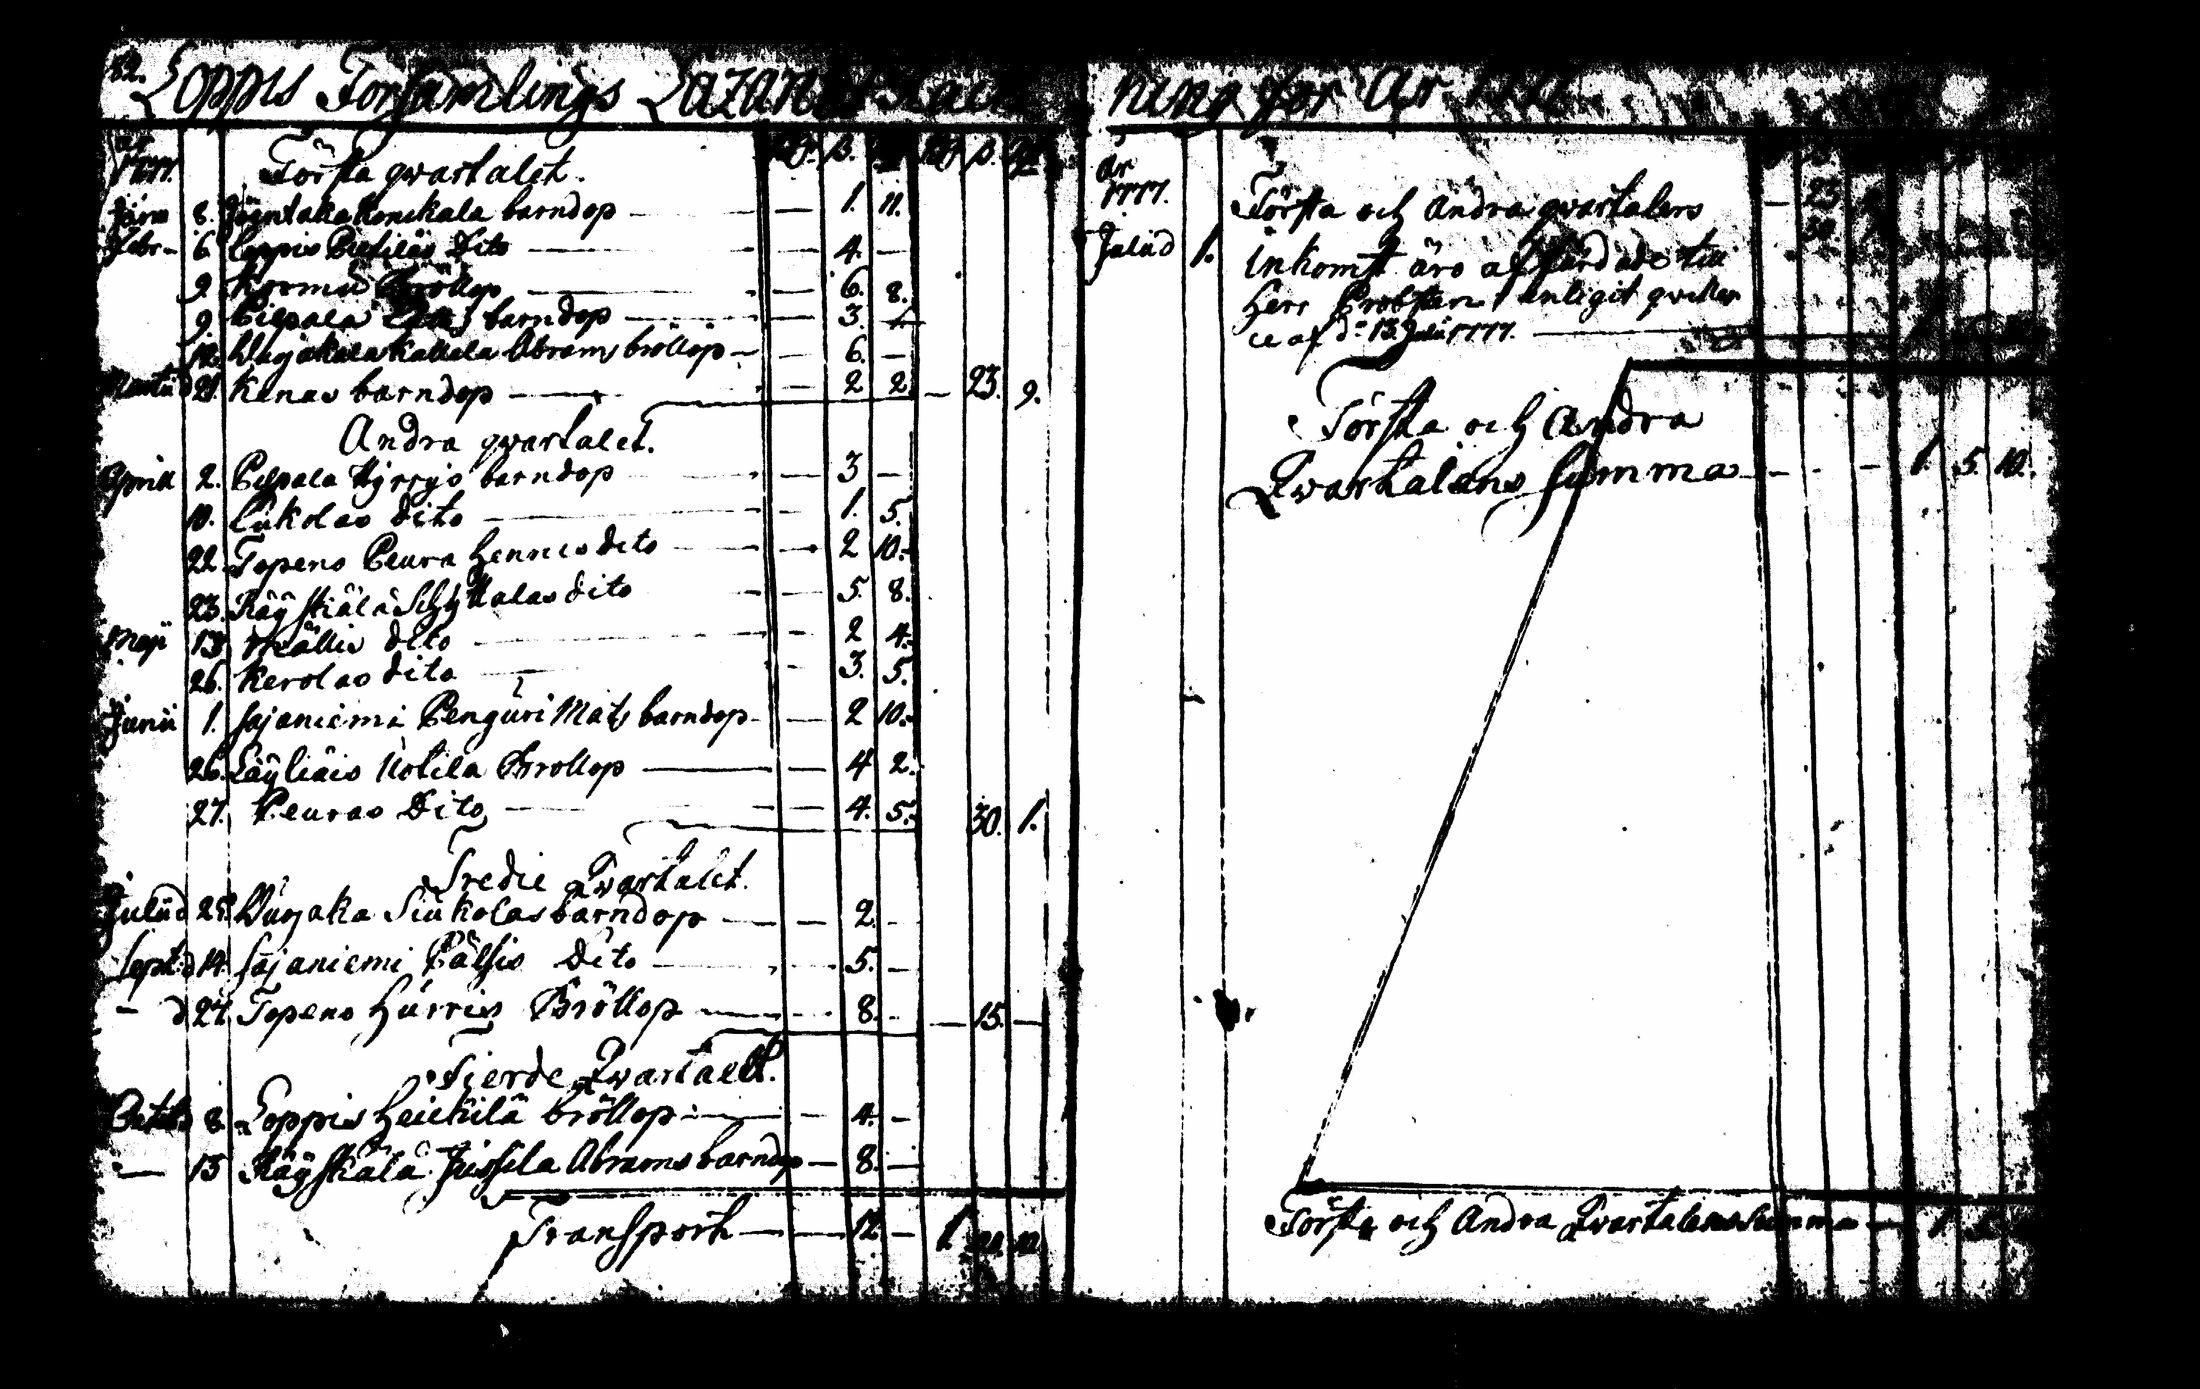 82. Loppis Forsamlings Lazaretts Räck
ning för År 1777
År
1777.
Första qwartalet.
Janu 8. Konikala barndop — — 1. 11.
Febr. 6. Loppis Pietiläs Dito — — 4. —
9. Kormu Bröllop — — 6. 8.
9. Pilpala barndop — — 3.
12. Wajakala Kallala Abrams bröllop — — 6. —
Martii d 21. Kenas barndop — — 2 2. — 23. 9.
Andra qwartalet.
April 2. Pilpala Hyrrys barndop — — 3 —
10. Lukolas dito — — 1. 5.
22. Topeno Peura Hennes dito — — 2 10.
23. Räyskiälä dito — — 5. 8.
Maji 13 Mällis dito — — 2 4.
26. Kerolas dito — — 3. 5.
Junii 1. Sajaniemi Penguri Mats barndop — — 2 10.
26. Läyliäis Uotila Bröllop — — 4 2.
27. Peuras Dito — — 4. 5. 30. 1.
Tredie Qwartalet.
Julii d 25. Wajaka Siukolas barndop — — 2. -
Sept: d 14. Sajaniemi Pälsis Dito — — 5. —
— d 27. Topeno Hurris Bröllop — — 8. - — 15. —
Fierde Qwartalet.
Octob 8. Loppis Heickilä bröllop — — 4. —
— 13 Räyskälä Jussila Abrams barndop — 8. —
Transport — — 12. — 1.
År
1777.
Första och Andra qwartalers — 23
Julii d 1. Inkomst äro affärdade till 30.
Herr Probsten enligit qwitten
ce af d. 13. Julii 1777.
Första och Andra
Qwartalens Summa — - — 1. 5. 10.
Första och Andra Qwartalens Summa — 1